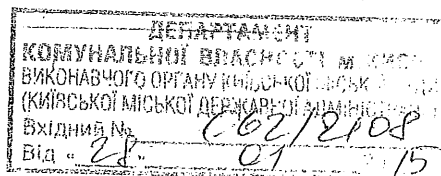 ДЕПАРТАМЕНТ
КОМУНАЛЬНОЇ ВЛАСНОСТІ М.
ВИКОНАВЧОГО ОРГАНУ КИЇВСЬКОЇ
(КИЇВСЬКОЇ МІСЬКОЇ ДЕРЖАВНОЇ
Вхідний № 062/2108
Від « 28 » 01 15